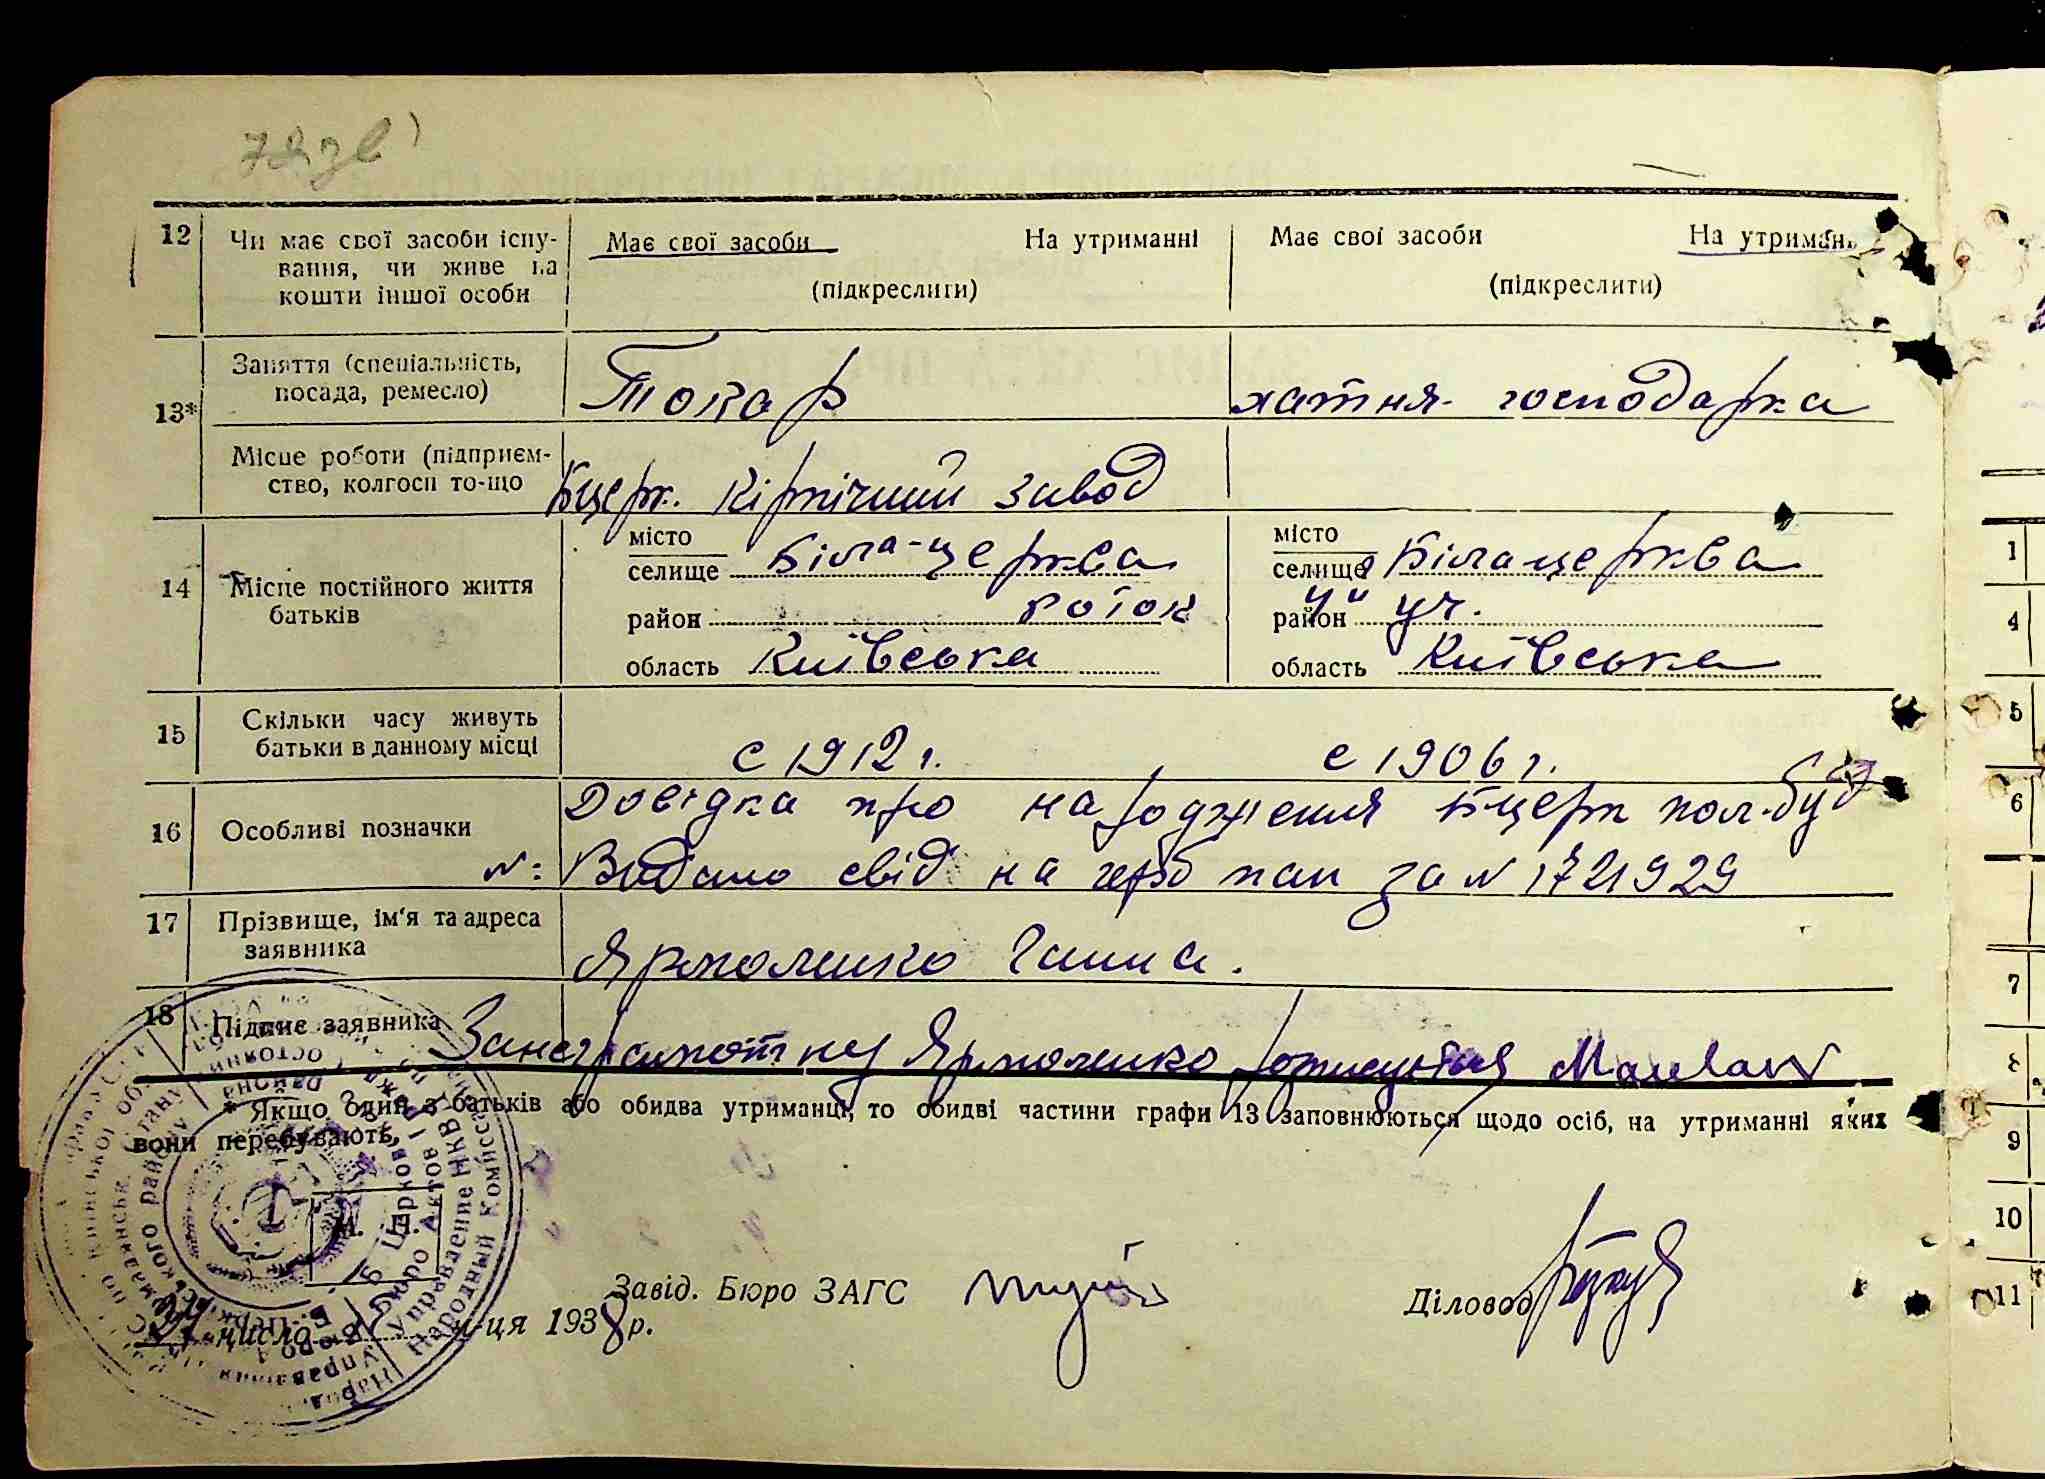 12
Чи має свої засоби існу-
вання, чи живе на
кошти іншої особи
Має свої засоби На утриманні
(підкреслити)
Має свої засоби На утриман
(підкреслити)
13*
Заняття (спеціальність,
посада, ремесло)
Токар
хатня господарка
Місце роботи (підприєм-
ство, колгосп то-що
Бцерк. кірпічний завод
14
Місце постійного життя
батьків
місто
селище Біла-церква
район роток
область Київська
місто
селище Білацерква
район уч.
область Київська
15
Скільки часу живуть
батьки в данному місці
с 1912 г.
с 1906 г.
16
Особливі позначки
Довідка про народження Бцерк пол.буд
N: Видано свід на герб пап за N 1721929
17
Прізвище, ім'я та адреса
заявника
Ярмоленко Ганна.
18
Підпис заявника
За неграмотну Ярмоленко
* Якщо один з батьків або обидва утриманці, то обидві частини графи 13 заповнюються щодо осіб, на утриманні яких
вони перебувають.
М. П.
Завід. Бюро ЗАГС
Діловод
число 8 м-ця 1938 р.
Народный Комисс
Управление НКВД
Бюро Актов
Б Церков
1
4
5
6
7
8
9
10
11